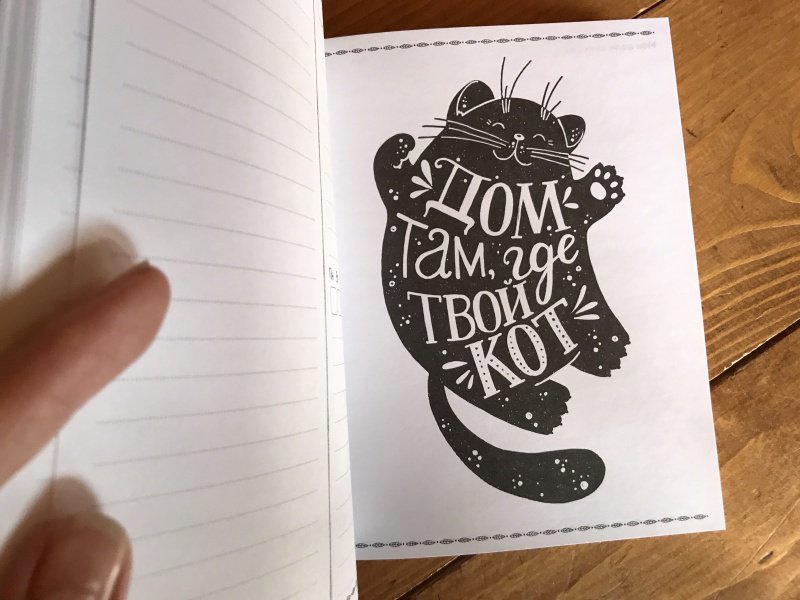 Дом
там, где
твой
кот